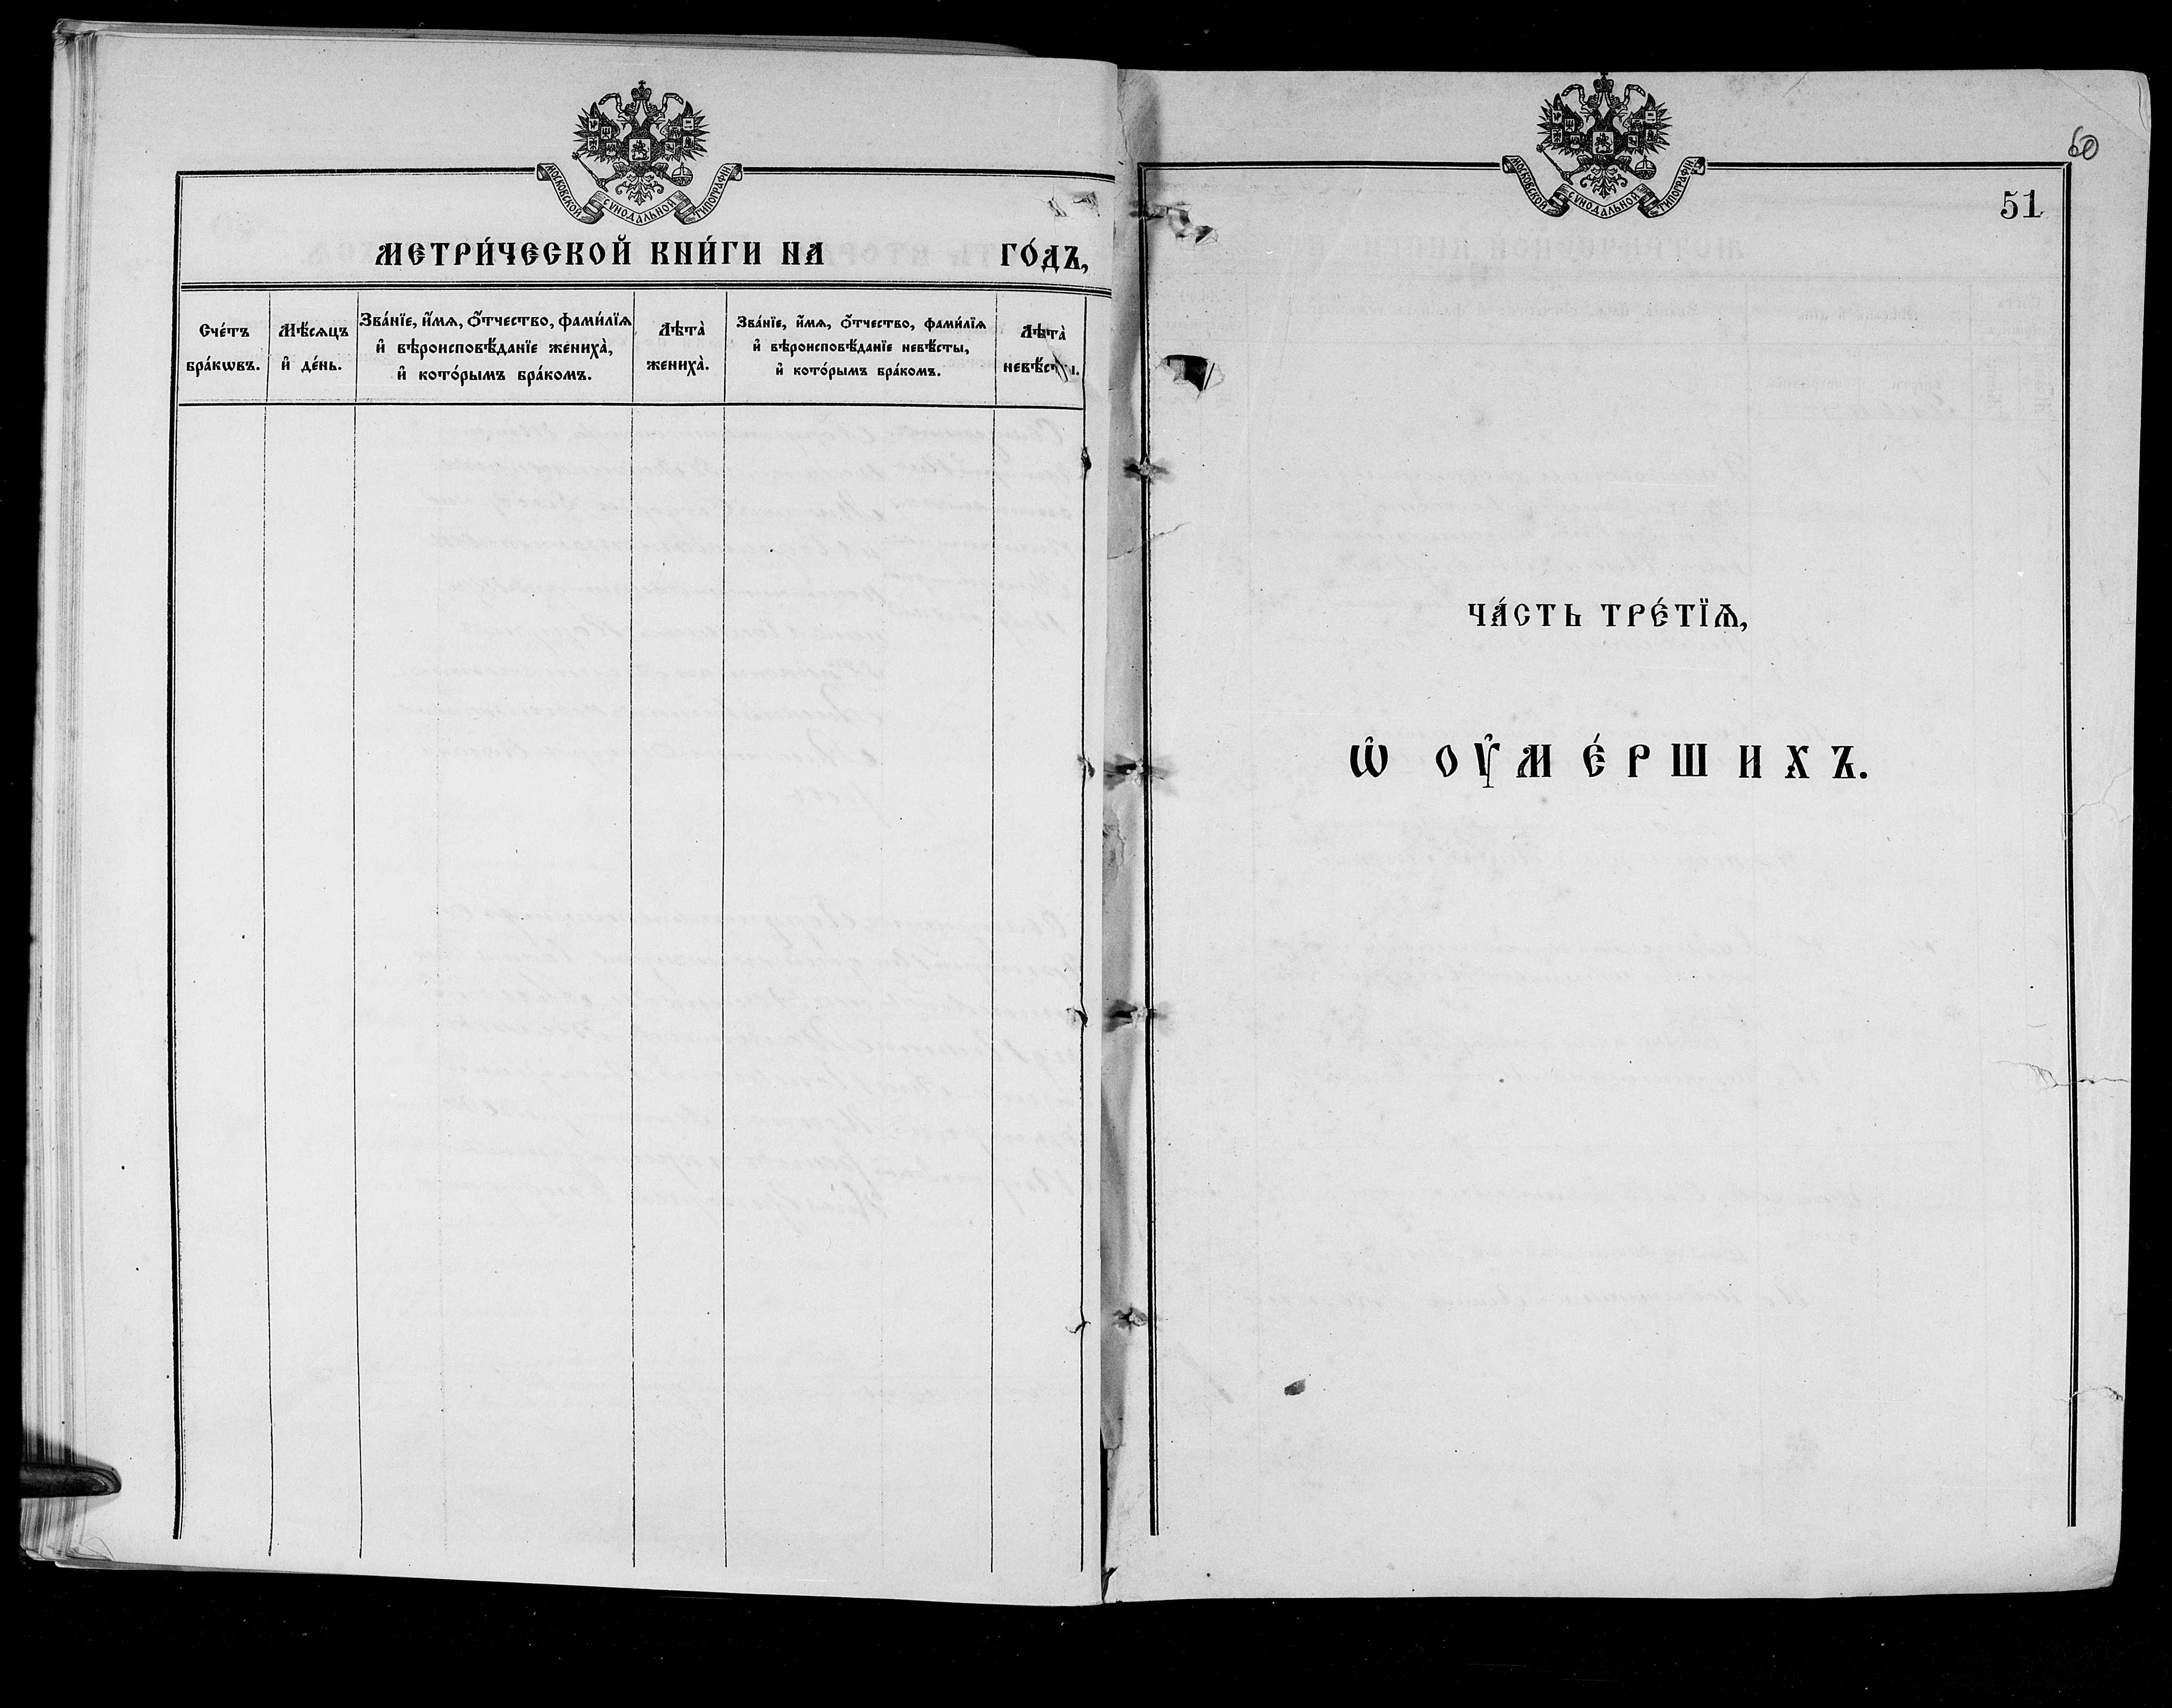 МОСКОВСКОЙ СѴНОДАЛЬНОЙ ТИПОГРАФІИ.
МЕТРИ́ЧЕСКОЙ КНИ́ГИ НА ГО́ДЪ,
Сче́тъ
бра́кѡвъ.
Мѣ́сѧцъ
и҆ де́нь.
Зва́нїе, и҆́мѧ, ѻ҆́тчество, фами́лїѧ
и҆ вѣроисповѣ́данїе женихà,
и҆ кото́рымъ бра́комъ.
Лѣтà
женихà.
Зва́нїе, и҆́мѧ, ѻ҆́тчество, фами́лїѧ
и҆ вѣроисповѣ́данїе невѣ́сты,
и҆ кото́рымъ бра́комъ.
Лѣтà
невѣ́сты.
МОСКОВСКОЙ СѴНОДАЛЬНОЙ ТИПОГРАФІИ.
60
51
ЧА́СТЬ ТРЕ́ТЇѦ,
Ѡ҆ ОУ҆МЕ́РШИХЪ.